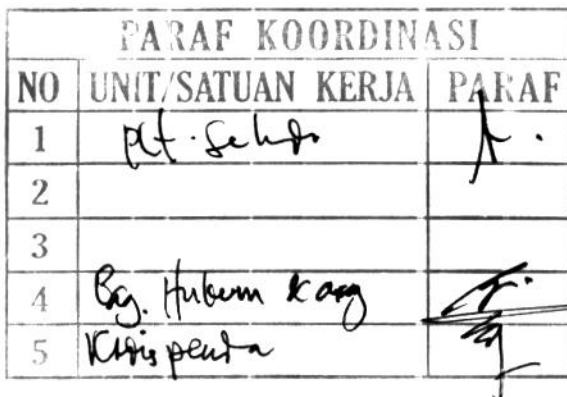 PARAF KOORDINASI
NO UNIT/SATUAN KERJA PARAF
1 Plt. Sekda
2
3
4 Bg. Hukum
5